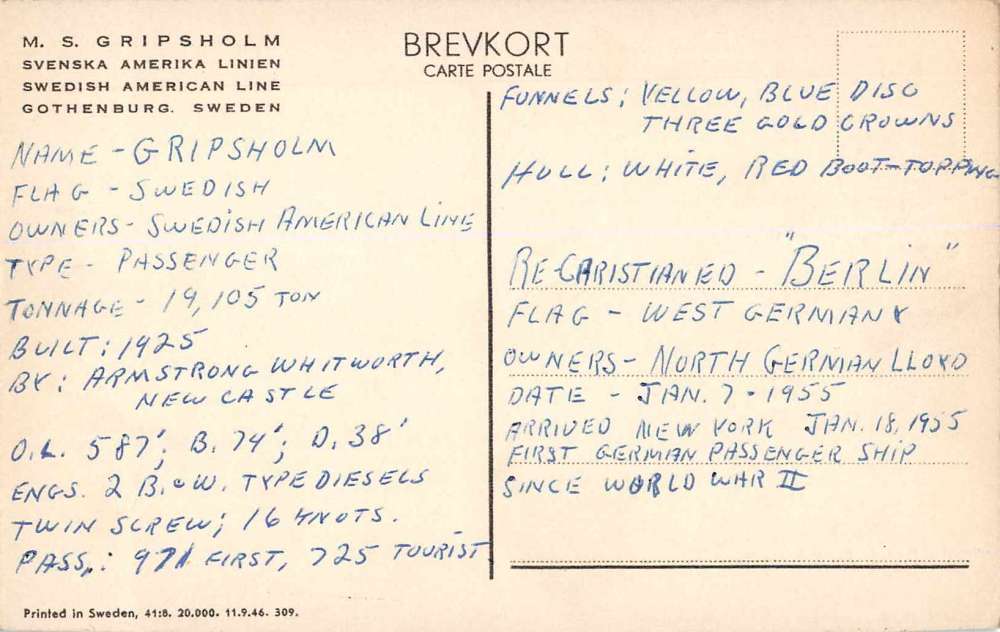 M. S. GRIPSHOLM
SVENSKA AMERIKA LINIEN
SWEDISH AMERICAN LINE
GOTHENBURG. SWEDEN
NAME - GRIPSHOLM
FLAG - SWEDISH
OWNERS - SWEDISH AMERICAN LINE
TYPE - PASSENGER
TONNAGE - 19,105 TON
BUILT: 1925
BY: ARMSTRONG WHITWORTH,
NEW CASTLE
O.L. 587'; B. 74'; D. 38'
ENGS. 2 B. & W. TYPE DIESELS
TWIN SCREW; 16 KNOTS.
PASS.: 971 FIRST, 725 TOURIST
Printed in Sweden, 41:8. 20.000. 11.9.46. 309.
BREVKORT
CARTE POSTALE
FUNNELS; YELLOW, BLUE DISC
THREE GOLD CROWNS
HULL: WHITE, RED BOOT-TOPPING
RE-CHRISTIANED - "BERLIN"
FLAG - WEST GERMANY
OWNERS - NORTH GERMAN LLOYD
DATE - JAN. 7 - 1955
ARRIVED NEW YORK JAN. 18, 1955
FIRST GERMAN PASSENGER SHIP
SINCE WORLD WAR II